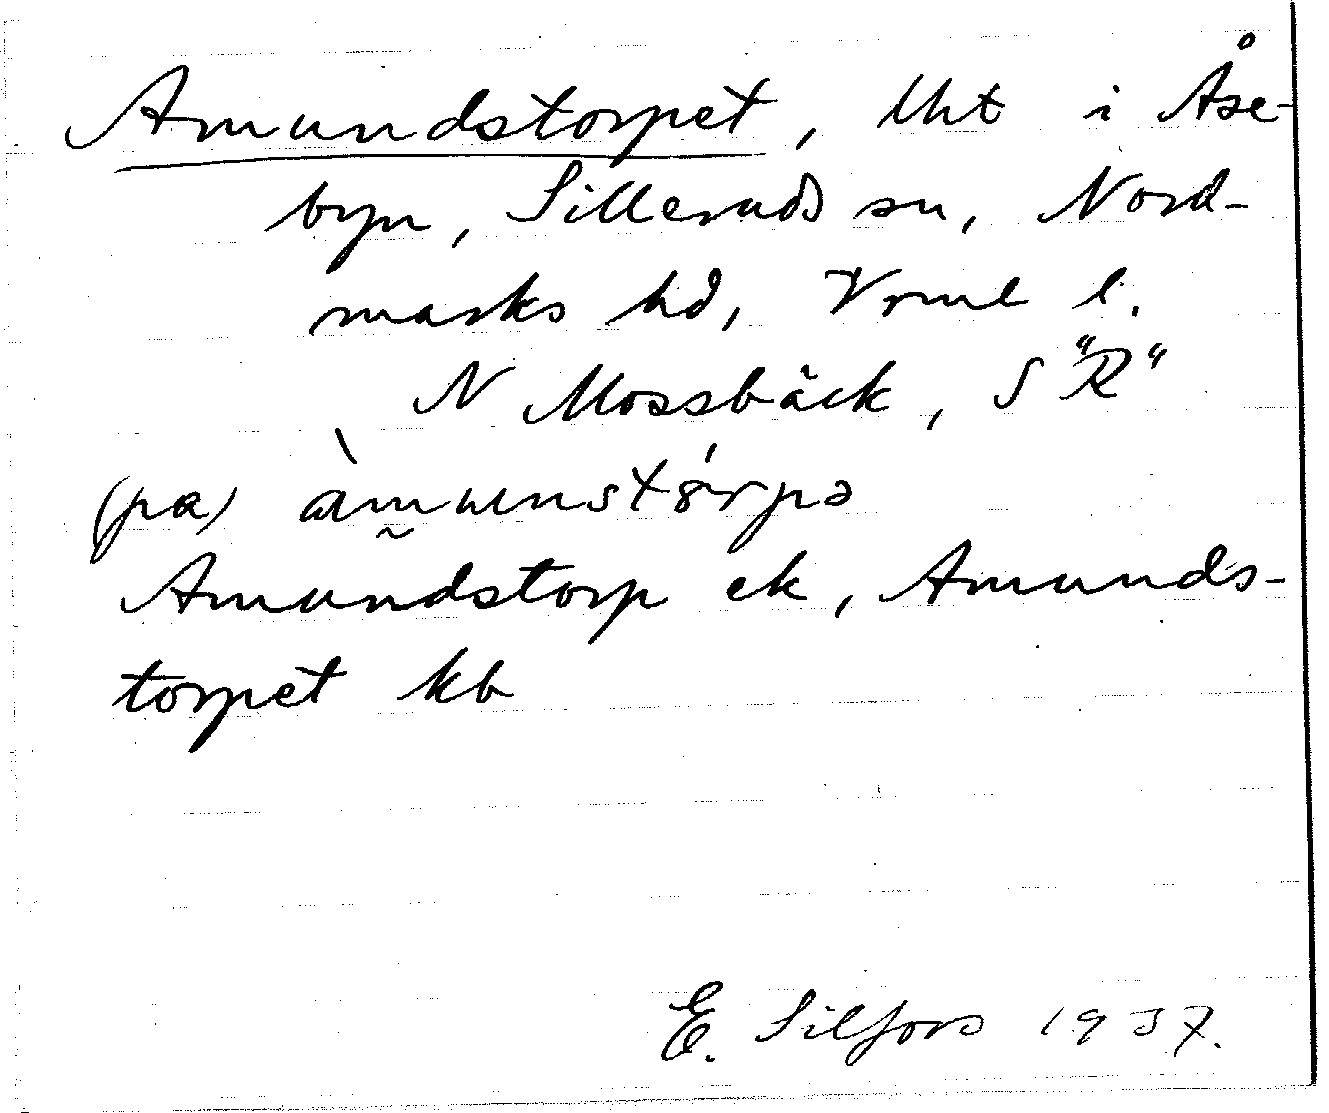 Amundstorpet, lht i Åse-
byn, Silleruds sn, Nord-
marks hd, Vrml l.
N Mossbäck, S "R"
(pa) àmunstórpə
Amundstorp ek, Amunds-
torpet kb
E. Silfors 1937.